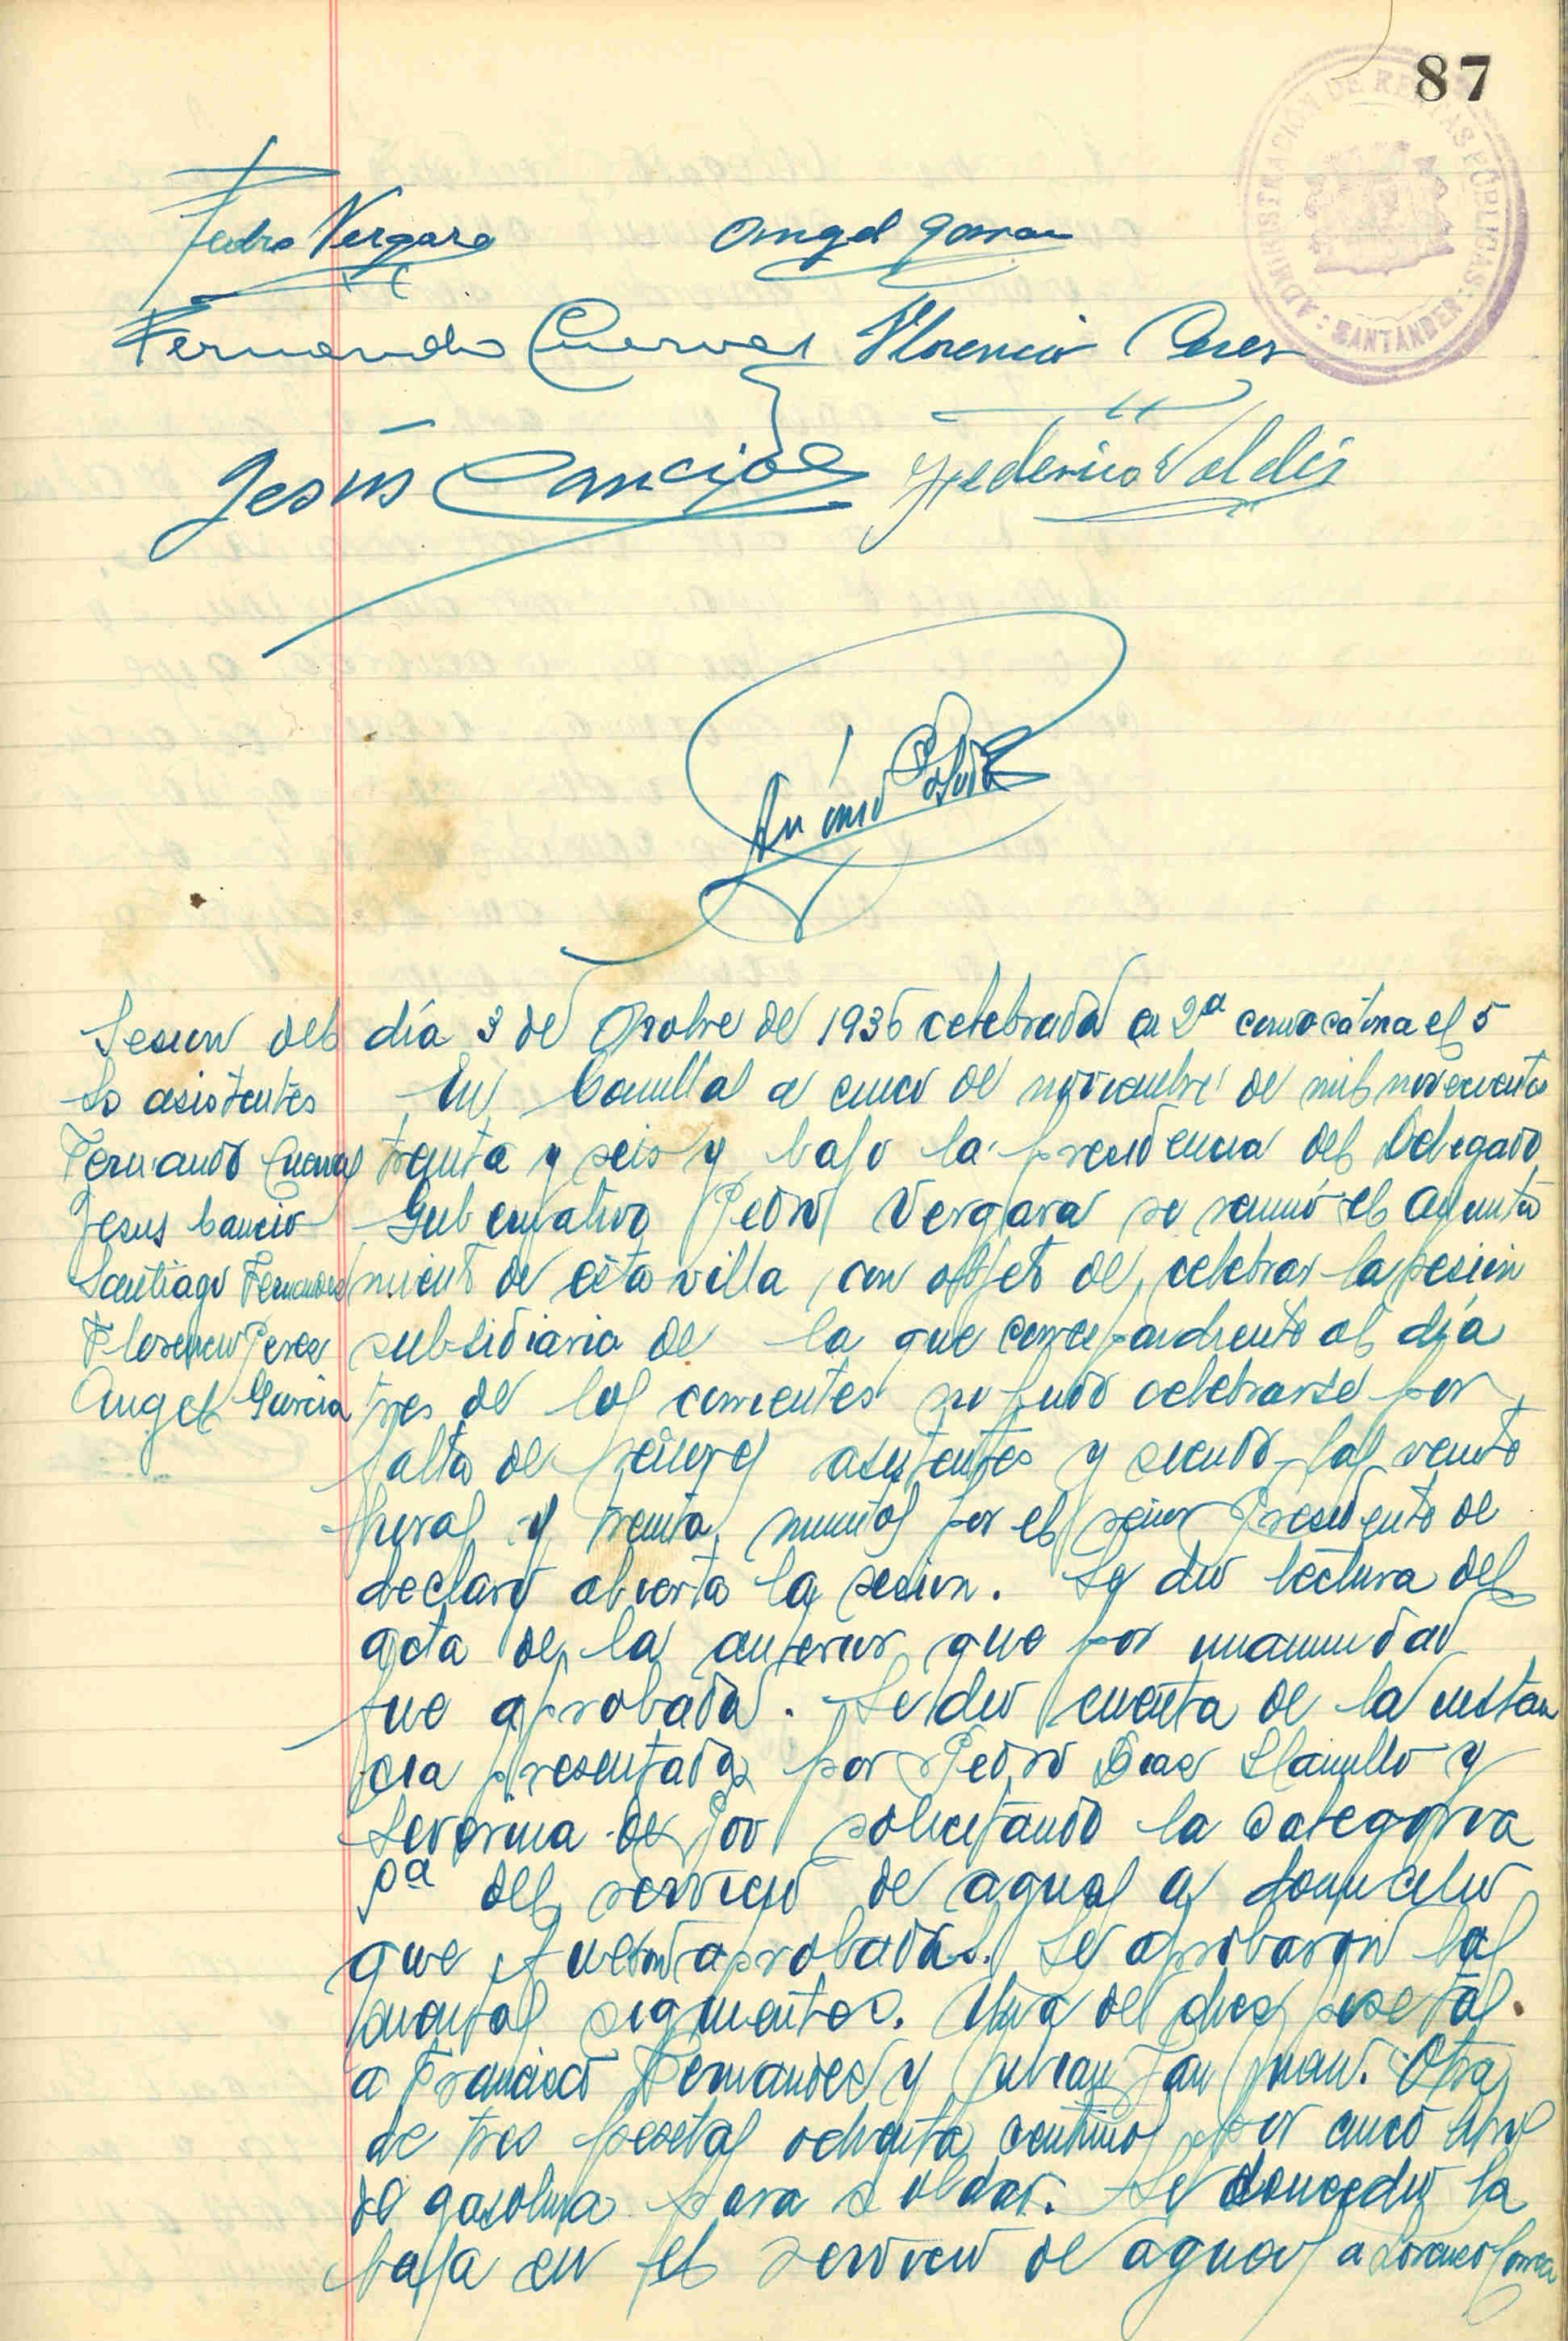 87
ADMINISTRACIÓN DE RENTAS PUBLICAS: SANTANDER
Pedro Vergara Angel Garcia
Fernando Cuevas Florencio Perez
Jesús Cancio Federico Valdés
Antonio
Sesion del día 3 de Otobre de 1936 celebrada en 2ª convocatoria el 5
So asistentes
Fernando Cuevas
Jesus Cancio
Santiago Fernandez
Florencio Perez
Angel Garcia
En Comillas a cinco de noviembre de mil novecientos
treinta y seis y bajo la presidencia del Delegado
Gubernativo Pedro Vergara se reunió el Ayunta
miento de esta villa, con objeto de celebrar la sesion
subsidiaria de la que correspondiente al día
tres de los corrientes no pudo celebrarse por
falta de señores asistentes y siendo las veinte
horas y treinta minutos por el señor Presidente se
declaró abierta la sesion. Se dio lectura del
acta de la anterior que por unanimidad
fue aprobada. Se dio cuenta de la instan
cia presentada por Pedro Diaz Llanillo y
Severina de Poo solicitando la categoria
del servicio de aguas a domicilio
que fueron aprobadas. Se aprobaron las
cuentas siguientes. Una de diez pesetas.
a Francisco Fernandez y Julian San Juan. Otra
de tres pesetas ochenta centimos por cinco litros
de gasolina para soldar. Se concedio la
baja en el servicio de aguas a Lorenzo